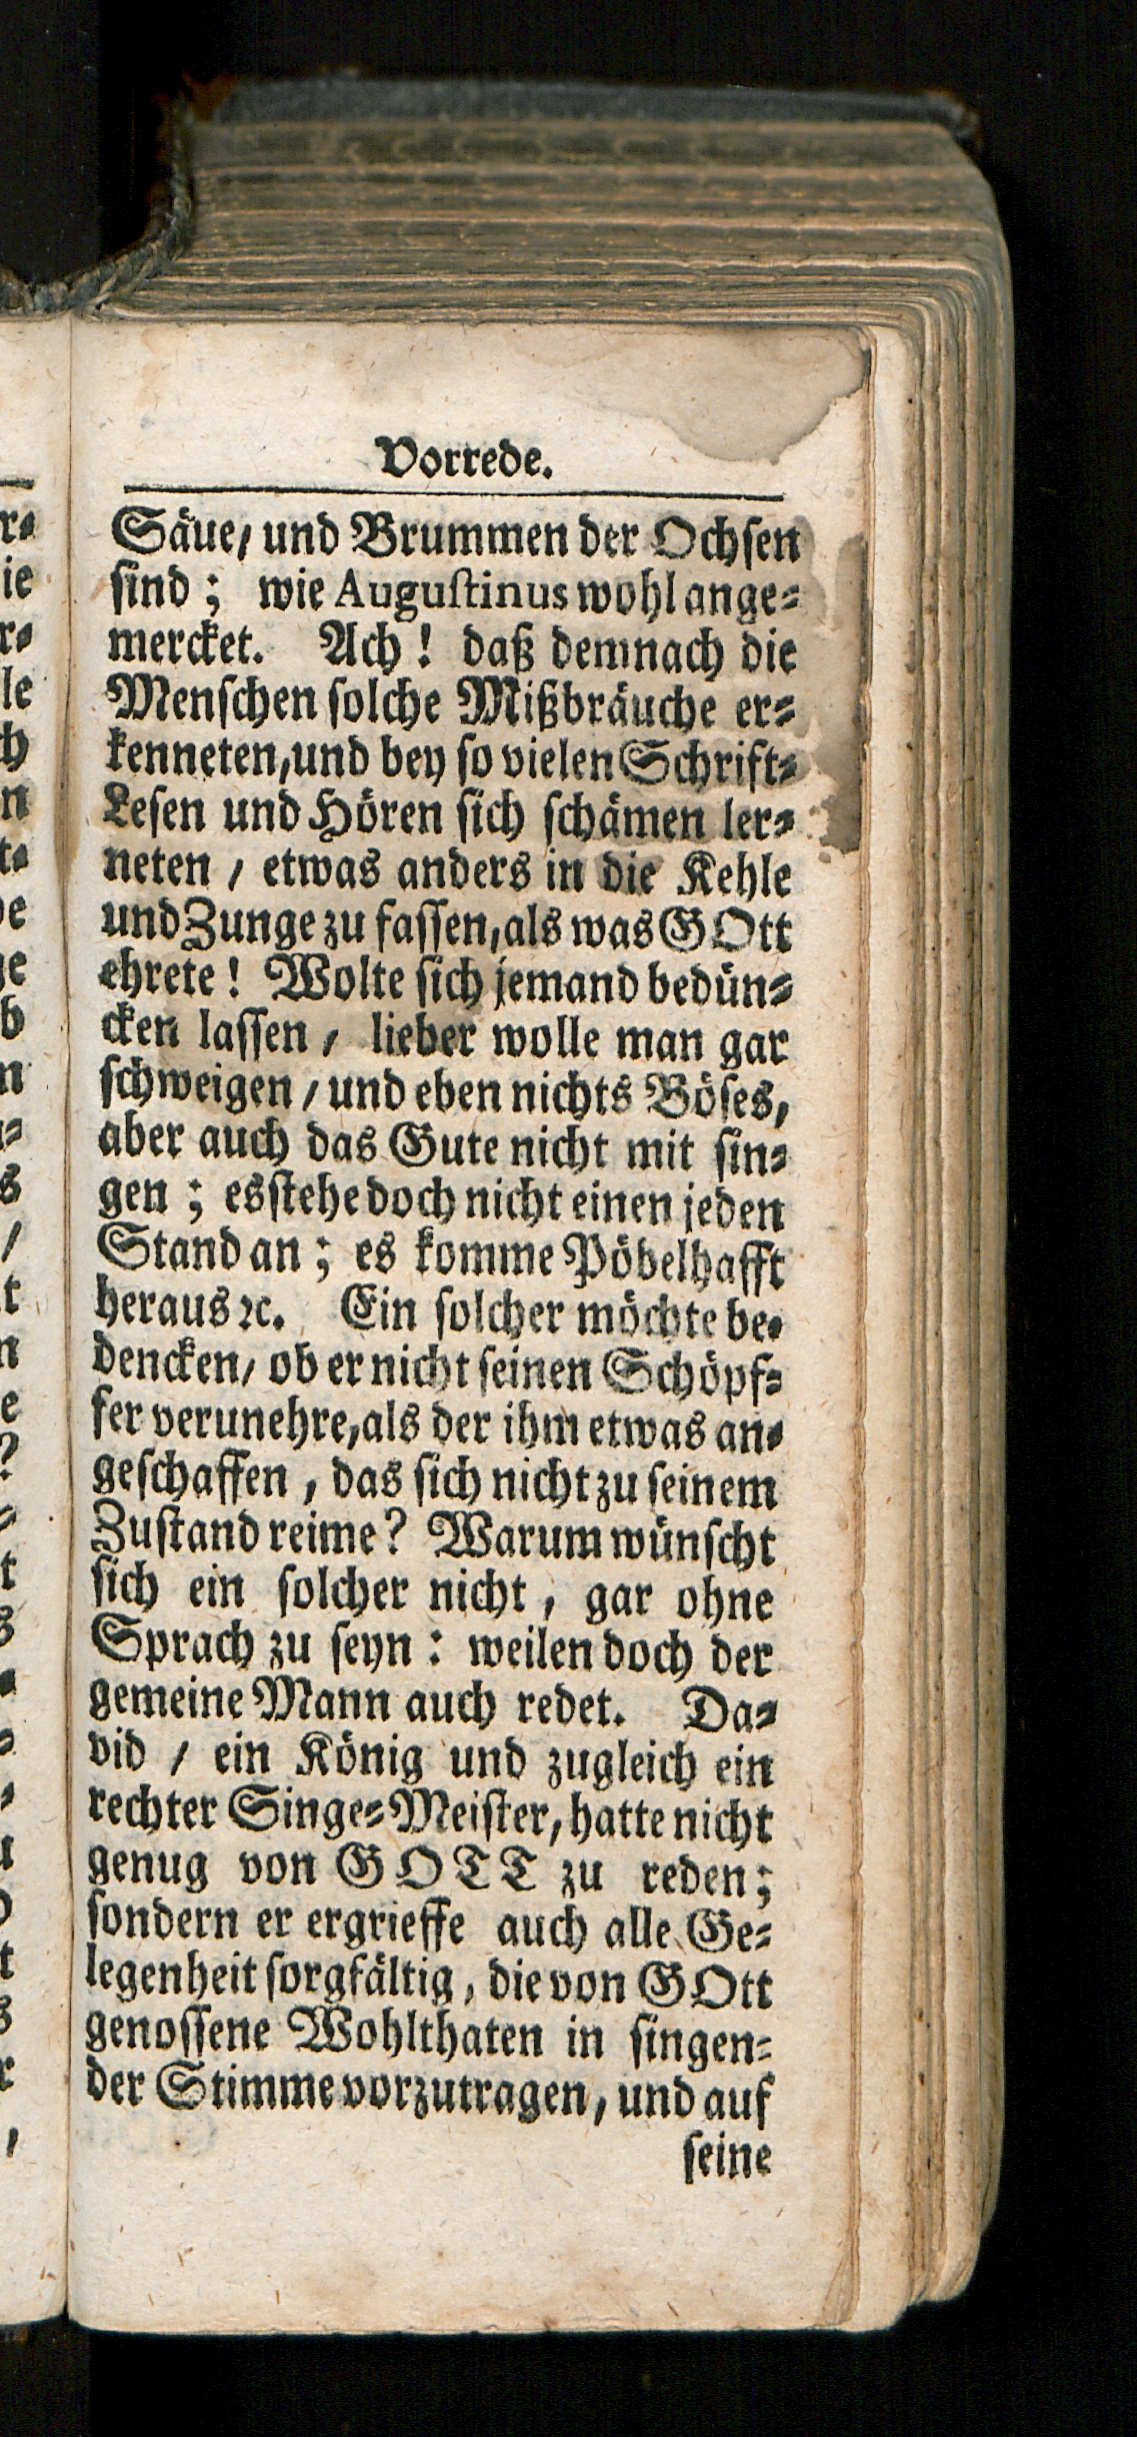 Vorrede.
Säue/ und Brummen der Ochsen
sind; wie Augustinus wohl ange-
mercket. Ach! daß demnach die
Menschen solche Mißbräuche er-
kenneten, und bey so vielen Schrift-
Lesen und Hören sich schämen ler-
neten / etwas anders in die Kehle
und Zunge zu fassen, als was GOtt
ehrete! Wolte sich jemand bedün-
cken lassen / lieber wolle man gar
schweigen / und eben nichts Böses,
aber auch das Gute nicht mit sin-
gen; es stehe doch nicht einen jeden
Stand an; es komme Pöbelhafft
heraus ꝛc. Ein solcher möchte be-
dencken/ ob er nicht seinen Schöpf-
fer verunehre, als der ihm etwas an-
geschaffen, das sich nicht zu seinem
Zustand reime? Warum wünscht
sich ein solcher nicht, gar ohne
Sprach zu seyn: weilen doch der
gemeine Mann auch redet. Da-
vid / ein König und zugleich ein
rechter Singe-Meister, hatte nicht
genug von GOTT zu reden;
sondern er ergrieffe auch alle Ge-
legenheit sorgfältig, die von GOtt
genossene Wohlthaten in singen-
der Stimme vorzutragen, und auf
seine